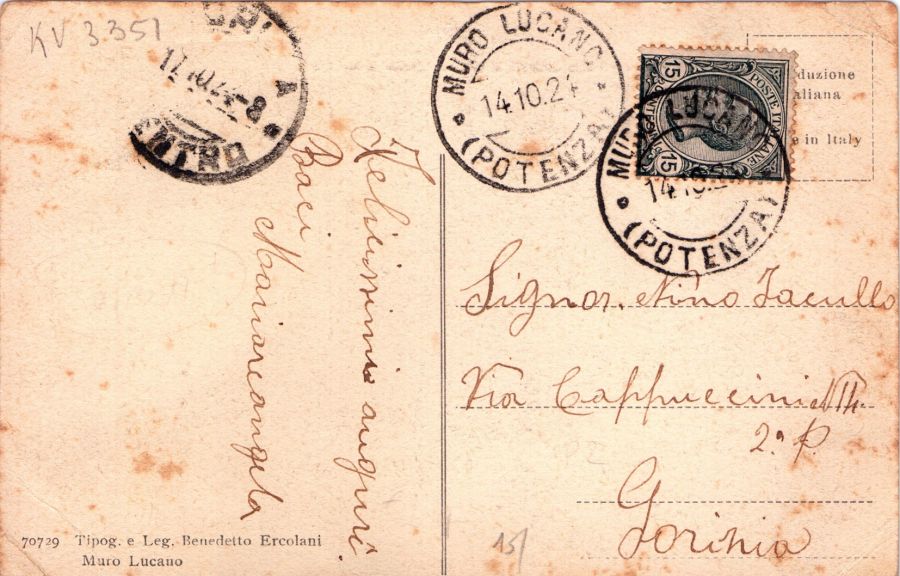 KV 3351
17.10.24-8
MURO LUCANO
14.10.24
(POTENZA)
15
POSTE ITALIANE
15
duzione
aliana
in Italy
MURO LUCANO
14.10.2
(POTENZA)
Felicissimi auguri
Baci
Mariarcangela
Signor. Nino Iacullo
Via Cappuccini
2ª P.
Gorizia
15/
70729 Tipog. e Leg. Benedetto Ercolani
Muro Lucano